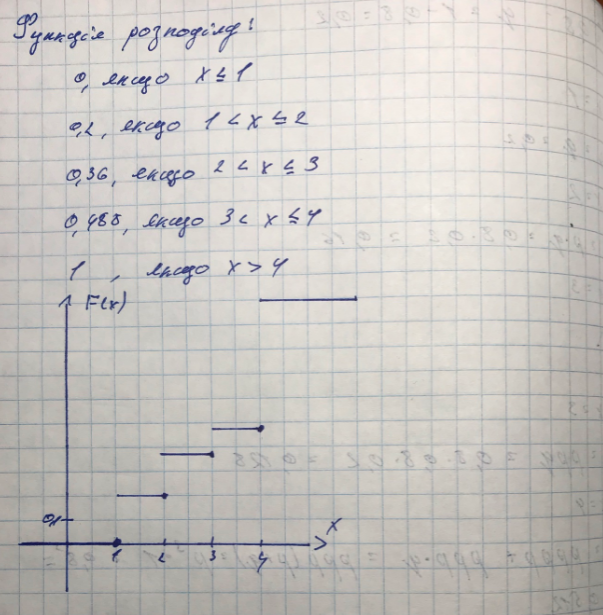 Функція розподілу:
0, якщо x ≤ 1
0,2, якщо 1 < x ≤ 2
0,36, якщо 2 < x ≤ 3
0,488, якщо 3 < x ≤ 4
1, якщо x > 4
F(x)
0,1
x
1 2 3 4